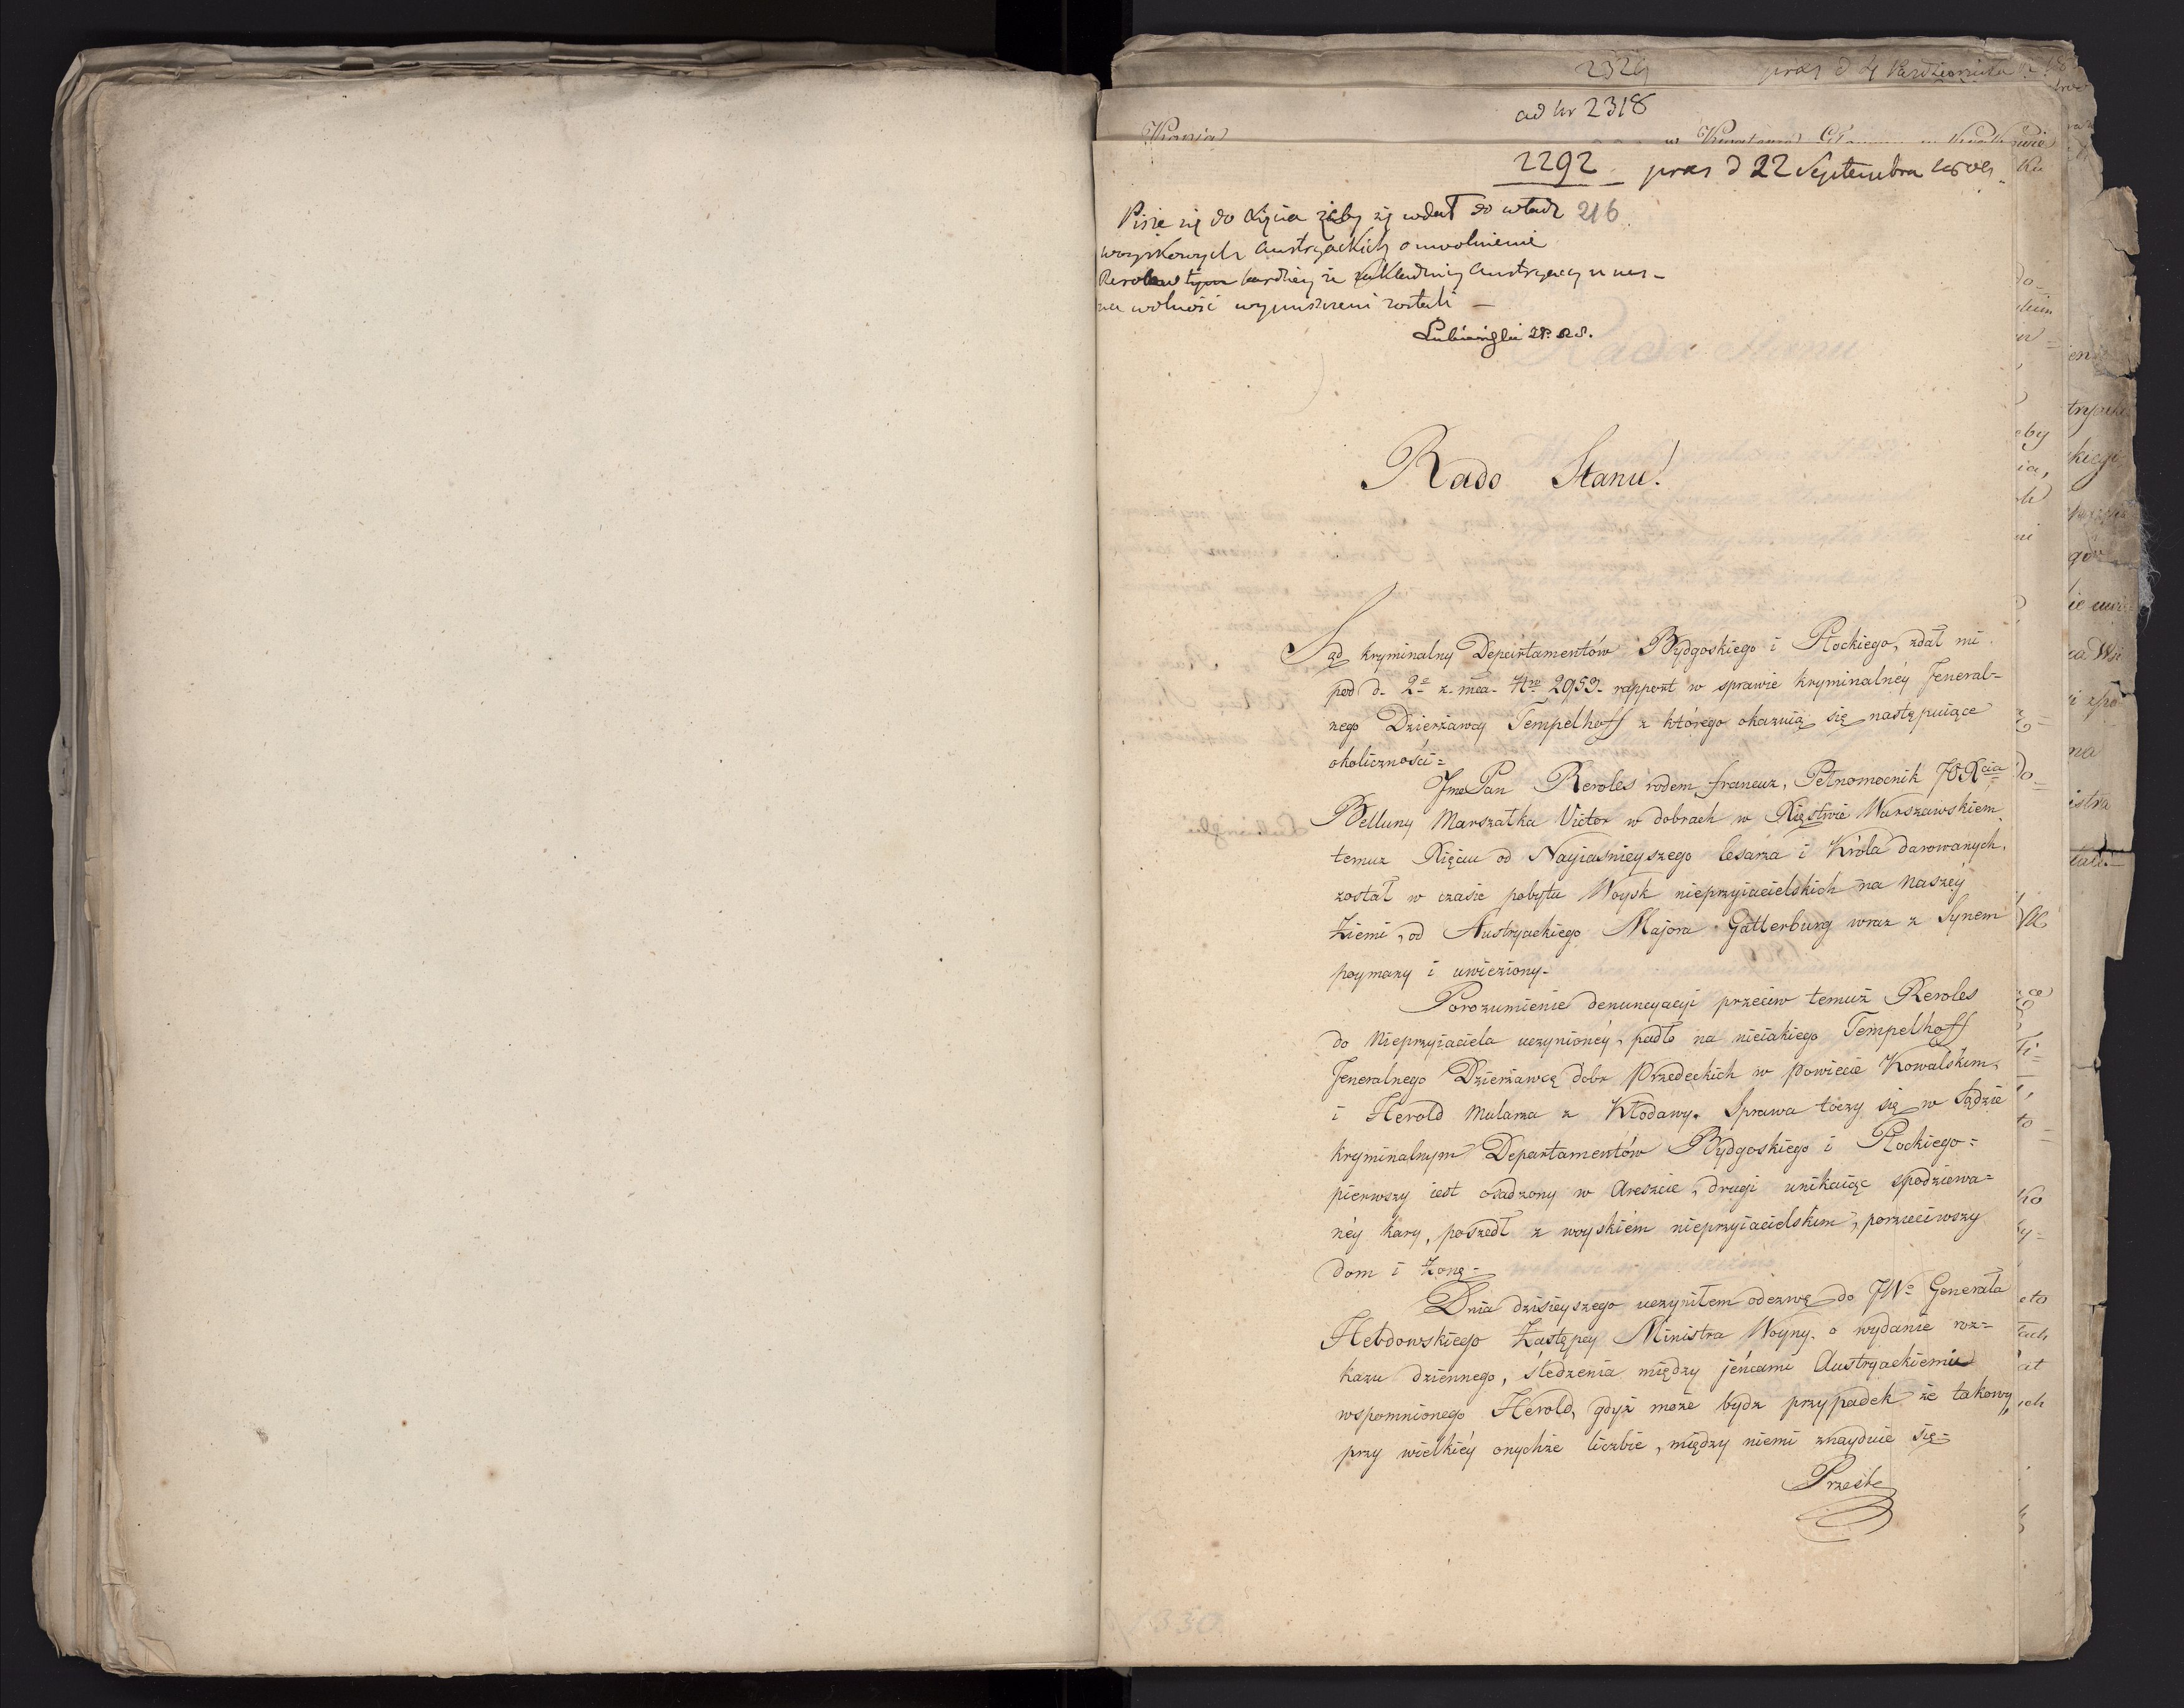 2324 pras d 4 Października
ad Nr 2318
2292 pras d 22 Septembra 1809
Pisze się do Xięcia żeby się udał do władz 216
woyskowych Austryackich o uwolnienie
Reroles tym bardziey że zakładnicy Austryaccy u nas
na wolność wypuszczeni zostali
Lubieński 28. 8.
Rado Stanu!
Sąd kryminalny Departamentów Bydgoskiego i Płockiego, zdał mi
pod d. 2o z. mca. Nro 2953. rapport w sprawie kryminalnéy Jeneral-
nego Dzierżawcy Tempelhoff z którego okazuią się następuiące
okoliczności=
Jmć Pan Reroles rodem francuz, Pełnomocnik JOXcia
Belluny Marszałka Victor w dobrach w Xięstwie Warszawskiem
temuż Xięciu od Nayiaśnieyszego Cesarza i Króla darowanych,
został w czasie pobytu Woysk nieprzyiacielskich na naszéy
Ziemi, od Austryackiego Majora Gatterburg wraz z Synem
poymany i uwięziony.
Porozumienie denuncyacyi przeciw temuż Reroles
do Nieprzyiaciela uczynionéy, padło na nieiakiego Tempelhoff
Jeneralnego Dzierżawcę dobr Przedeckich w powiecie Kowalskim,
i Herold Mularza z Kłodawy. Sprawa toczy się w Sądzie
kryminalnym Departamentów Bydgoskiego i Płockiego=
pierwszy iest osadzony w Areszcie, drugi unikaiąc spodziewa=
néy kary, poszedł z woyskiém nieprzyiacielskim, porzuciwszy
dom i Żonę=
Dnia dzisieyszego uczyniłem odezwę do JWo Generała
Hebdowskiego Zastępcy Ministra Woyny. o wydanie roz=
kazu dziennego, śledzenia między jeńcami Austryackiemi
wspomnionego Herold, gdyż może bydz przypadek że takowy,
przy wielkiéy onychże liczbie, między niemi znayduie się=
Prześle